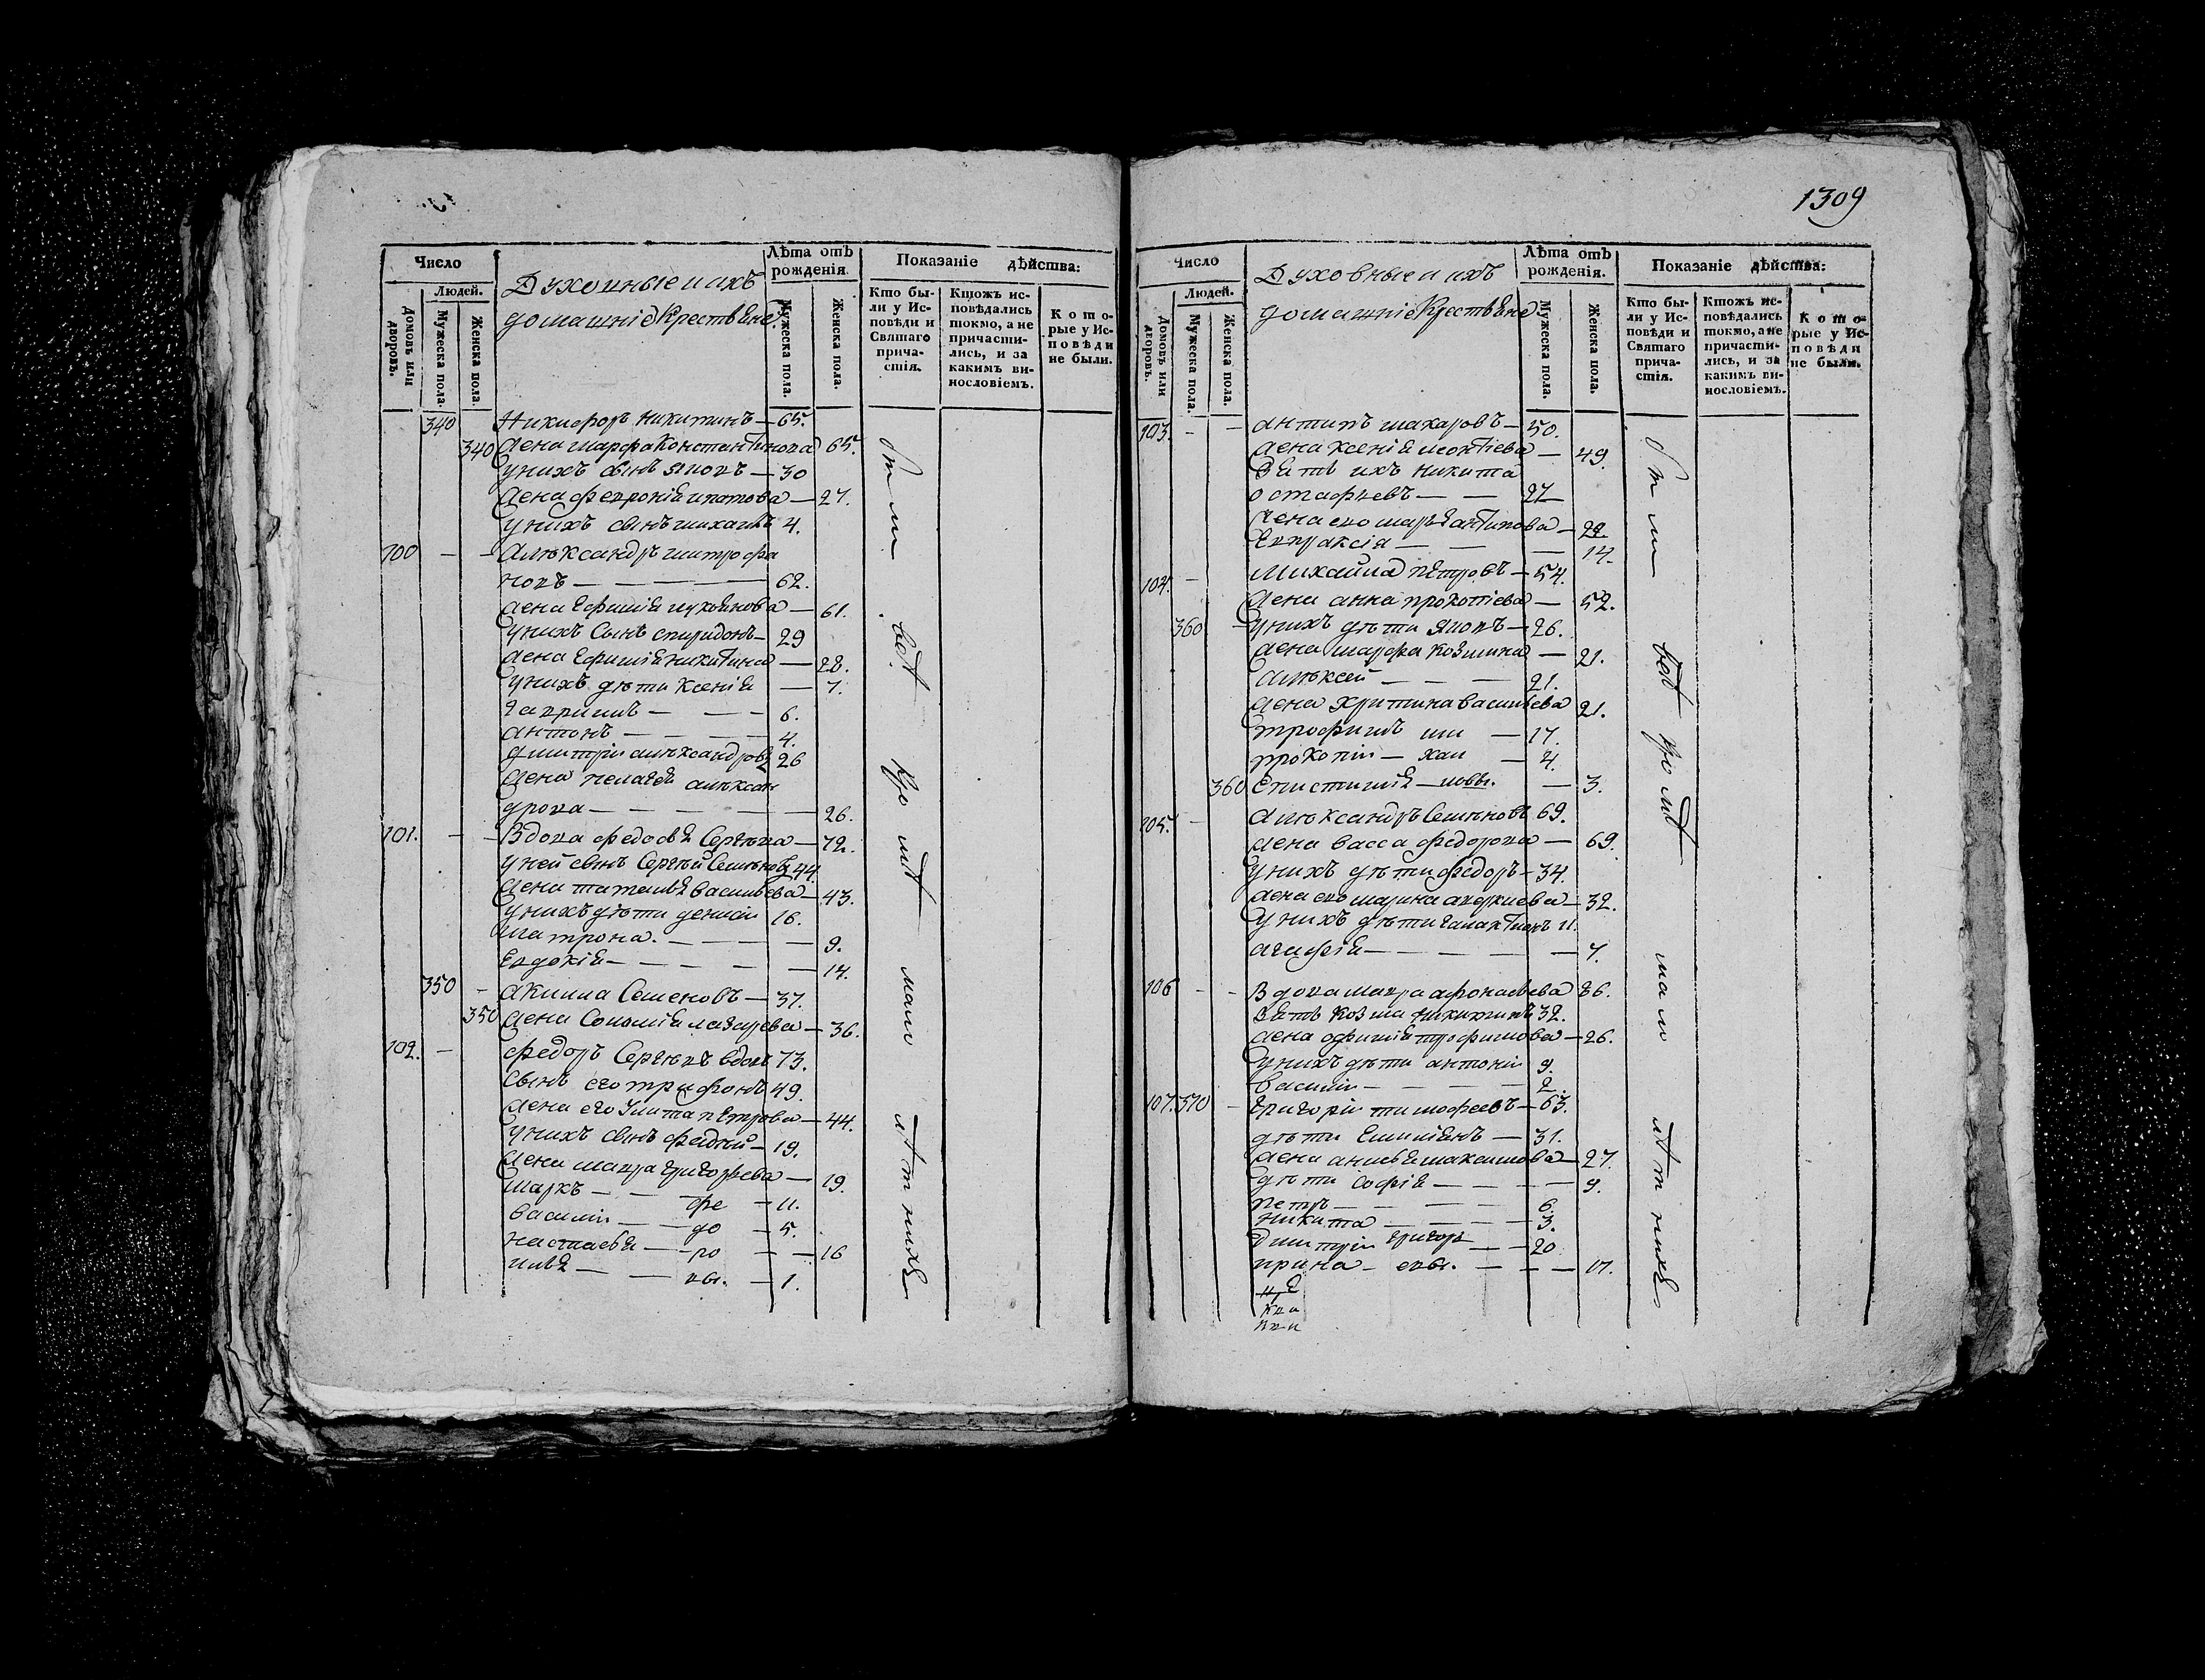 Число
Людей.
Домовъ или дворовъ.
Мужеска пола.
Женска пола.
Духовные и ихъ
домашніе Крестьяне
Лѣта отъ
рожденія.
Мужеска пола.
Женска пола.
Показаніе дѣйства:
Кто бы-
ли у Ис-
повѣди и
Святаго
прича-
стія.
Ктожъ ис-
повѣдались
токмо, а не
причасти-
лись, и за
какимъ ви-
нословіемъ.
Кото-
рые у Ис-
повѣди
не были.
340 Никифоръ Никитинъ — 65.
340 Жена Марфа Константинова 65.
У нихъ сынъ Яковъ — 30
Жена Феврониія Ипатова — 27.
У нихъ сынъ Михаилъ 4.
100 — — Александръ Митрофа
новъ — — — — 62.
Жена Ефимія Лукьянова — 61.
У нихъ сынъ Спиридонъ — 29
Жена Ефимія Никитина — 28.
У нихъ дѣти Ксенія — 7.
Гавриилъ — — — 6.
Антонъ — — — 4.
Дмитрій Александровъ 26
Жена Пелагея Алексан
дрова — — — — 26.
101. — — Вдова Федосья Сергѣева — 72.
У ней сынъ Сергѣй Семеновъ 44
Жена Татьяна Васильева — 43.
У нихъ дѣти Денисъ 16.
Матрона. — — — — 9.
Евдокія — — — — 14.
350 — Акима Семеновъ — 37.
350 Жена Соломія Лазарева — 36.
102. — Федоръ Сергѣевъ вдовъ 73.
Сынъ его Трифонъ 49.
Жена его Улита Петрова — 44.
У нихъ сынъ Федотъ — 19.
Жена Мавра Григорьева — 19.
Маркъ — — фе — 11.
Василій — — до — 5.
Настасья — ро — — 16
Илья — — вы. — 1.
всѣ
кро мѣ
мало
лѣт нихъ
1309
Число
Людей.
Домовъ или дворовъ.
Мужеска пола.
Женска пола.
Духовные и ихъ
домашніе Крестьяне
Лѣта отъ
рожденія.
Мужеска пола.
Женска пола.
Показаніе дѣйства:
Кто бы-
ли у Ис-
повѣди и
Святаго
прича-
стія.
Ктожъ ис-
повѣдались
токмо, а не
причасти-
лись, и за
какимъ ви-
нословіемъ.
Кото-
рые у Ис-
повѣди
не были.
103. — — Антипъ Макаровъ — 50.
Жена Ксенія Леонтіева — 49.
Зять ихъ Никита
Остафьевъ — — 27
Жена его Марья Антипова — 22.
Евпраксія — — — 14.
104. — Михайла Петровъ — 54.
Жена Анна Прокопіева — 52.
360 — У нихъ дѣти Яковъ — 26.
Жена Марфа Козмина — 21.
Алексей — — — 21.
Жена Христина Васильева 21.
Трофимъ ми — 17.
Прокопій — хаи — 4.
360 Епистимія — ловы. — 3.
105. — Александръ Семеновъ 69.
Жена Васса Федорова — 69.
У нихъ дѣти Федоръ — 34.
Жена его Марина Авдкиева — 32.
У нихъ дѣти Галактионъ 11.
Агафія — — — — 7.
106 — — Вдова Мавра Афонасьева 86.
Зять Козма Никитинъ 32.
Жена Офимія Трофимова — 26.
У нихъ дѣти Антоній 9.
Василій — — — 2.
107. 370 — Григорій Тимофеевъ — 63.
Дѣти Емиліянъ — 31.
Жена Анисья Максимова — 27.
Дѣти Софія — — — — 9.
Петръ — — — — 6.
Никита — — — — 3.
Дмитрій григорь — — 20
Ирина — евы. — — — 17.
всѣ
кро мѣ
мало
лѣт нихъ